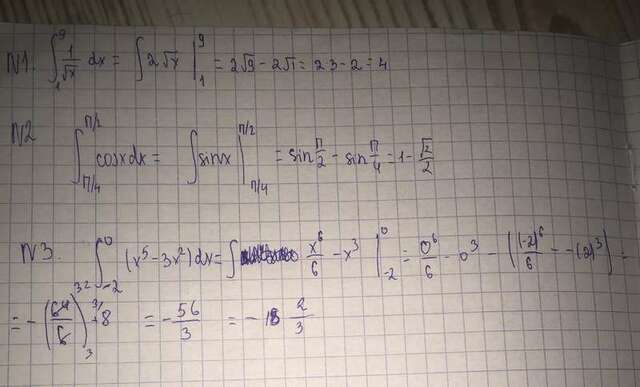 N1. ∫₁⁹ 1/√x dx = ∫ 2√x |₁⁹ = 2√9 - 2√1 = 2·3 - 2 = 4
N2 ∫_{π/4}^{π/2} cosxdx = ∫ sinx |_{π/4}^{π/2} = sin π/2 - sin π/4 = 1 - √2/2
N3. ∫_{-2}^{0} (x⁵ - 3x²) dx = ∫ x⁶/6 - x³ |_{-2}^{0} = 0⁶/6 - 0³ - ((-2)⁶/6 - -(2)³) =
= - (64/6 + 8) = - 56/3 = - 18 2/3